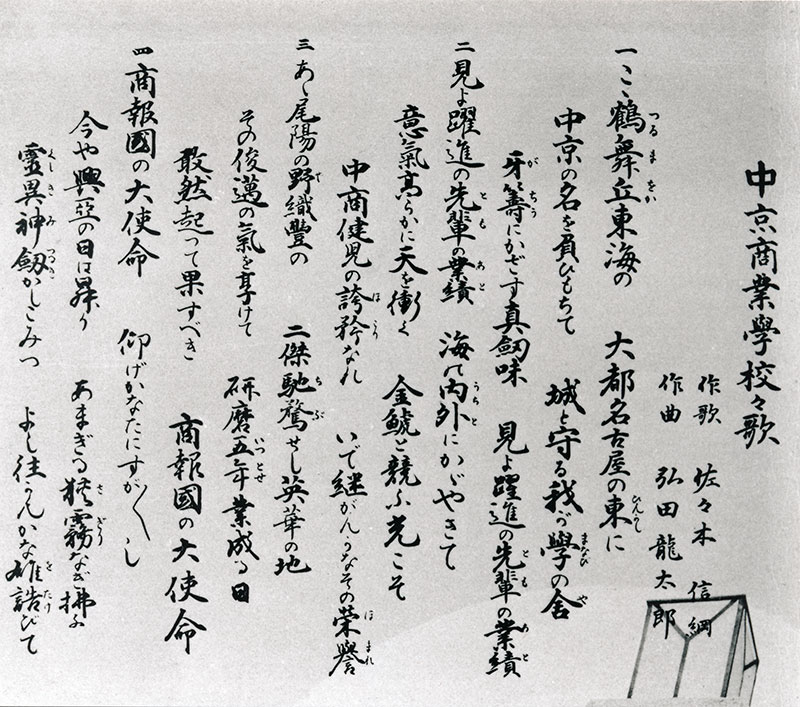 中京商業學校々歌
作歌 佐々木 信綱
作曲 弘田 龍太郎
一 こゝ鶴舞丘東海の 大都名古屋の東に
中京の名を負ひもちて 城と守る我が學の舎
牙籌にかざす真劔味 見よ躍進の先輩の業績
二 見よ躍進の先輩の業績 海の内外にかゞやきて
意氣高らかに天を衝く 金鯱と競ふ光こそ
中商健児の誇矜なれ いで継がんかなその栄譽
三 あゝ尾陽の野織豐の 二傑馳騖せし英華の地
その俊邁の氣を享けて 研磨五年業成る日
敢然起つて果すべき 商報國の大使命
四 商報國の大使命 仰げかなたにすが〳〵し
今や興亞の日は昇り あまぎる狭霧なぎ拂ふ
靈異神劔かしこみつ よし往かんかな雄誥びて